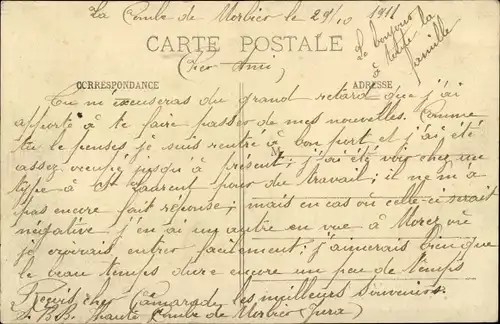 La Combe de Morbier le 29/10 1911
Le bonjour
à toute la
famille
CARTE POSTALE
Cher Ami,
CORRESPONDANCE
ADRESSE
M
Tu m'excuseras du grand retard que j'ai
apporté à te faire passer de mes nouvelles. Comme
tu le penses je suis rentré à bon port et j'ai été
assez occupé jusqu'à présent; j'ai été voir chez un
type à St Laurent pour du travail; il ne m'a
pas encore fait réponse; mais en cas où celle-ci serait
négative j'en ai un autre en vue à Morez où
je croirais entrer facilement; j'aimerais bien que
le beau temps dure encore un peu de temps
Reçois cher Camarade les meilleurs souvenirs.
Combe de Morbier (Jura)